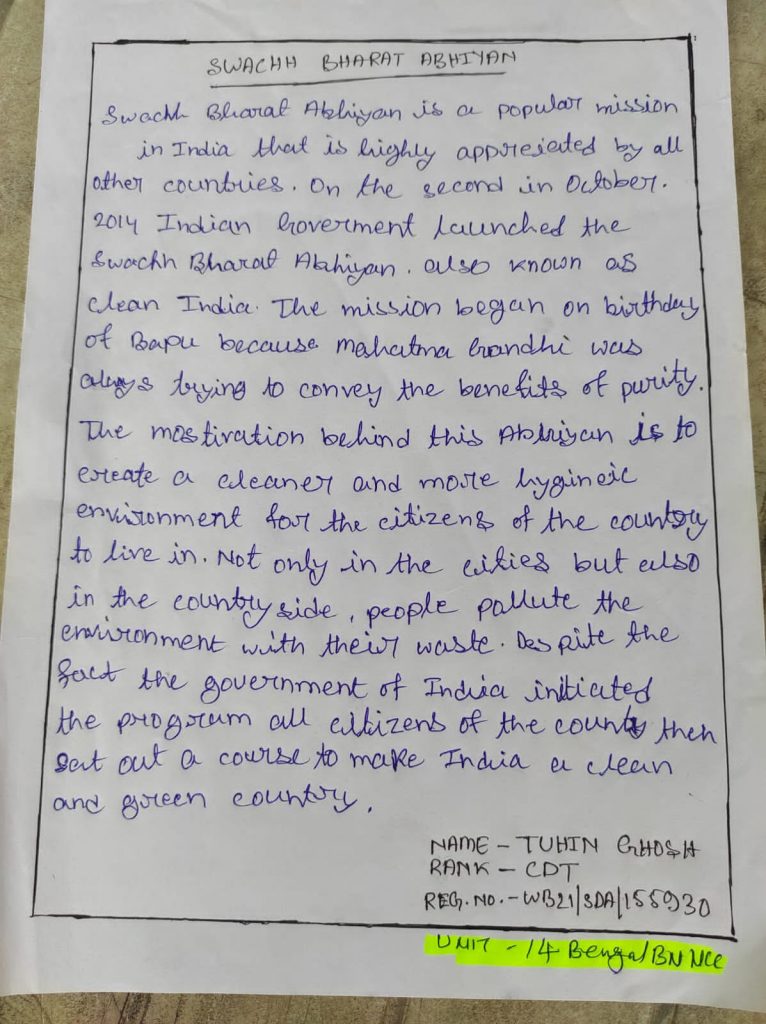 SWACHH BHARAT ABHIYAN
Swachh Bharat Abhiyan is a popular mission
in India that is highly appreciated by all
other countries. On the second in October.
2014 Indian Goverment launched the
Swachh Bharat Abhiyan. also known as
clean India. The mission began on birthday
of Bapu because mahatma Gandhi was
always trying to convey the benefits of purity.
The mostivation behind this Abhiyan is to
create a cleaner and more hygineic
environment for the citizens of the country
to live in. Not only in the cities but also
in the country side, people pollute the
environment with their waste. Despite the
fact the government of India initiated
the program all citizens of the county then
sat out a course to make India a clean
and green country.
NAME - TUHIN GHOSH
RANK - CDT
REG. NO. - WB21/SDA/155930
UNIT - 14 Bengal BN NCC